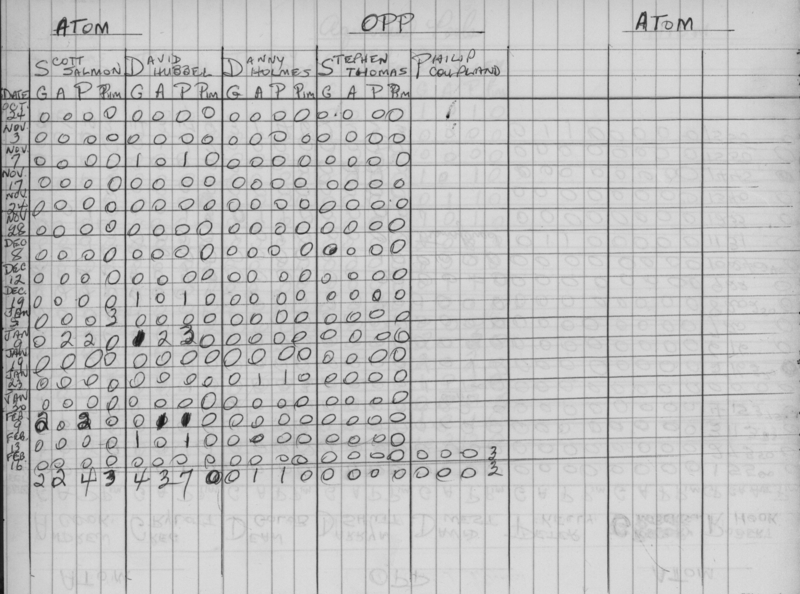 ATOM OPP ATOM
SCOTT DAVID DANNY STEPHEN PHILIP
SALMON HUBBEL HOLMES THOMAS COUPLAND
DATE G A P Pim G A P Pim G A P Pim G A P Pim
OCT. 24 0 0 0 0 0 0 0 0 0 0 0 0 0 0 0 0
NOV 3 0 0 0 0 0 0 0 0 0 0 0 0 0 0 0 0
NOV 7 0 0 0 0 1 0 1 0 0 0 0 0 0 0 0 0
NOV. 17 0 0 0 0 0 0 0 0 0 0 0 0 0 0 0 0
NOV 24 0 0 0 0 0 0 0 0 0 0 0 0 0 0 0 0
NOV 28 0 0 0 0 0 0 0 0 0 0 0 0 0 0 0 0
DEC 8 0 0 0 0 0 0 0 0 0 0 0 0 0 0 0 0
DEC 12 0 0 0 0 0 0 0 0 0 0 0 0 0 0 0 0
DEC. 19 0 0 0 0 1 0 1 0 0 0 0 0 0 0 0 0
JAN 5 0 0 0 3 0 0 0 0 0 0 0 0 0 0 0 0
JAN 9 0 2 2 0 1 2 3 0 0 0 0 0 0 0 0 0
JAN 19 0 0 0 0 0 0 0 0 0 0 0 0 0 0 0 0
JAN 23 0 0 0 0 0 0 0 0 0 1 1 0 0 0 0 0
JAN 30 0 0 0 0 0 0 0 0 0 0 0 0 0 0 0 0
FEB. 9 2 0 2 0 0 1 1 0 0 0 0 0 0 0 0 0
FEB. 13 0 0 0 0 1 0 1 0 0 0 0 0 0 0 0 0
FEB. 16 0 0 0 0 0 0 0 0 0 0 0 0 0 0 0 0 0 0 0 3
2 2 4 3 4 3 7 0 0 1 1 0 0 0 0 0 0 0 0 3